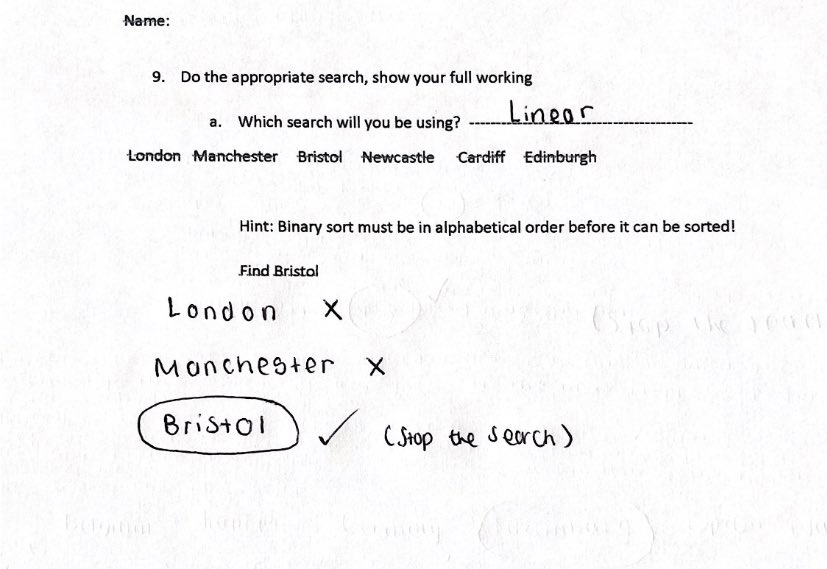 Name:
9. Do the appropriate search, show your full working
a. Which search will you be using? Linear
London Manchester Bristol Newcastle Cardiff Edinburgh
Hint: Binary sort must be in alphabetical order before it can be sorted!
Find Bristol
London X
Manchester X
Bristol ✓ (Stop the search)